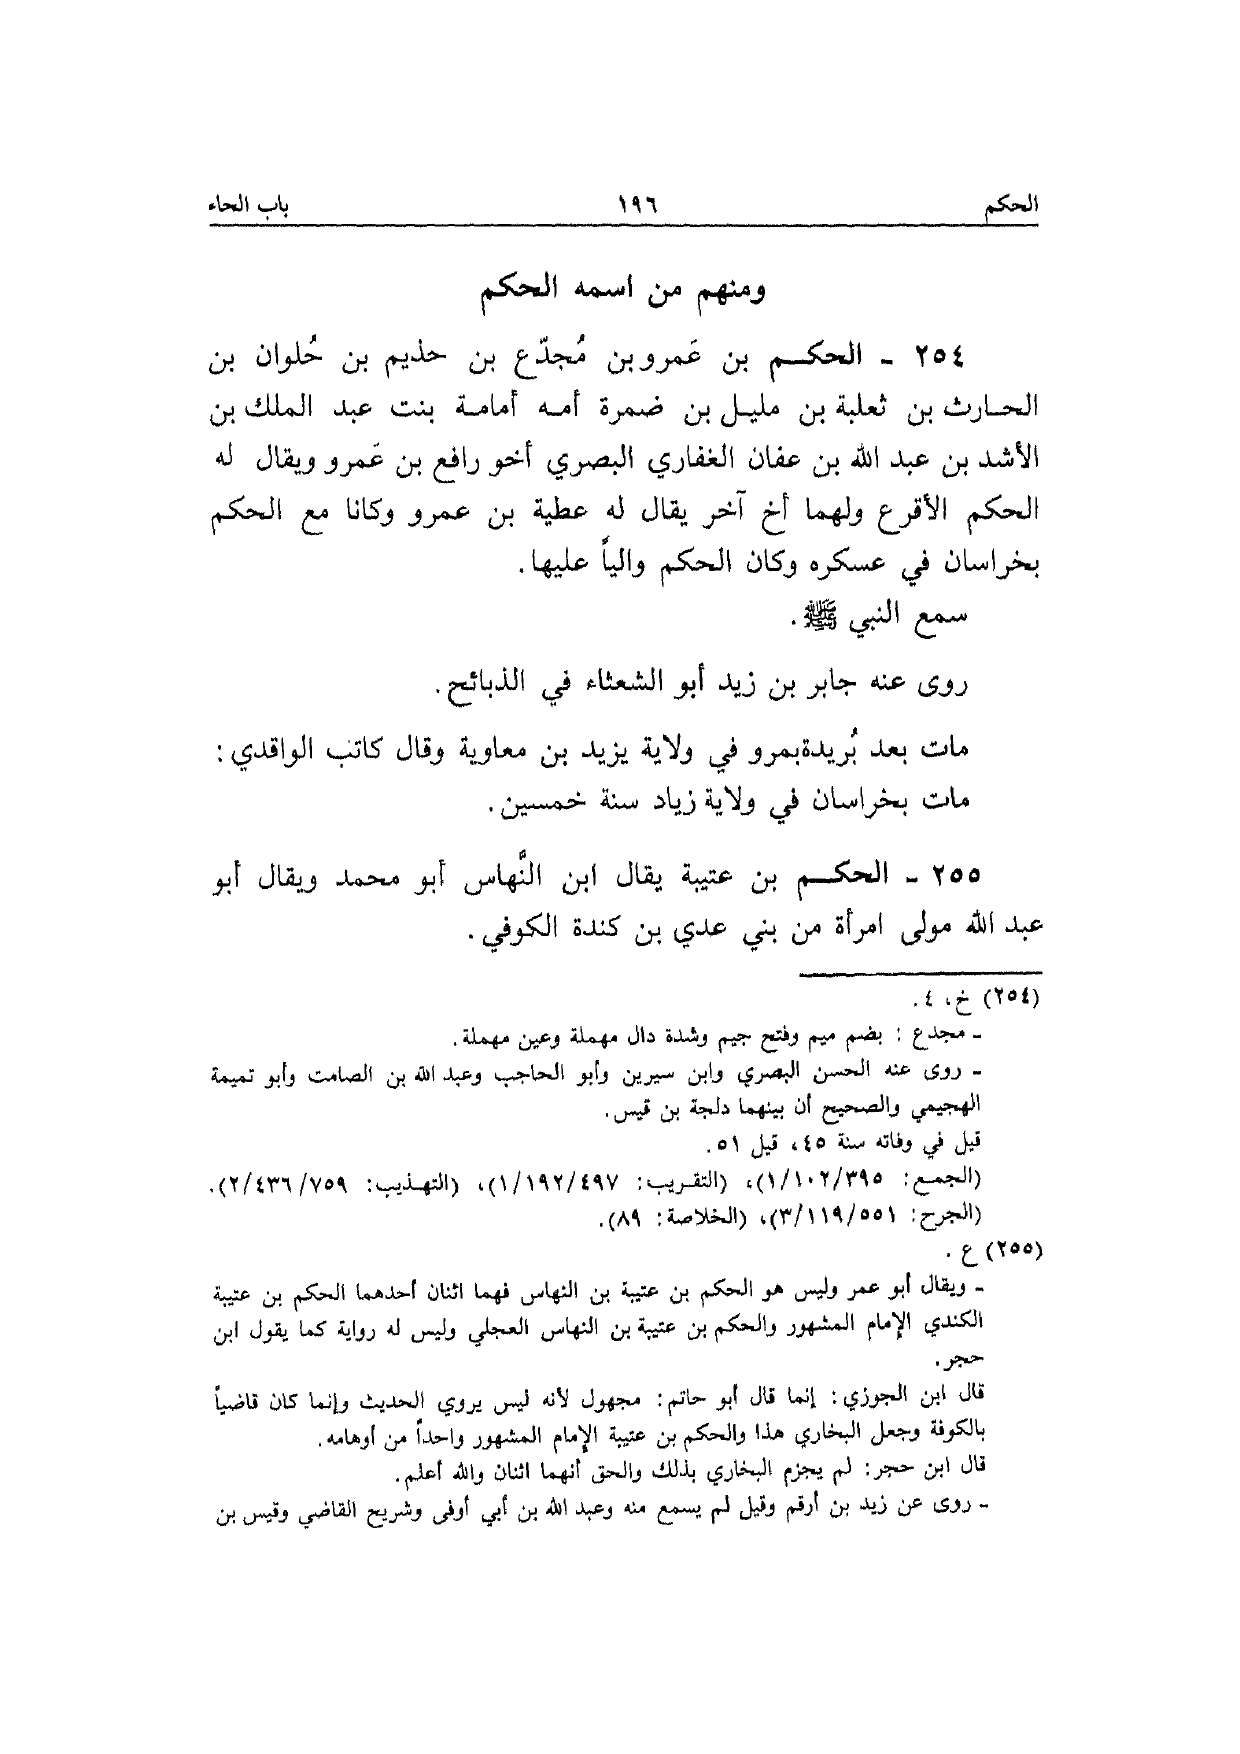 الحكم ١٩٦ باب الحاء
ومنهم من اسمه الحكم
٢٥٤ ـ الحكـم بن عَمرو بن مُجدّع بن حذيم بن حُلوان بن
الحارث بن ثعلبة بن مليل بن ضمرة أمه أمامة بنت عبد الملك بن
الأشد بن عبد الله بن عفان الغفاري البصري أخو رافع بن عَمرو ويقال له
الحكم الأقرع ولهما أخ آخر يقال له عطية بن عمرو وكانا مع الحكم
بخراسان في عسكره وكان الحكم والياً عليها.
سمع النبي ﷺ.
روى عنه جابر بن زيد أبو الشعثاء في الذبائح.
مات بعد بُريدة بمرو في ولاية يزيد بن معاوية وقال كاتب الواقدي:
مات بخراسان في ولاية زياد سنة خمسين.
٢٥٥ ـ الحكـم بن عتيبة يقال ابن النَّهاس أبو محمد ويقال أبو
عبد الله مولى امرأة من بني عدي بن كندة الكوفي.
(٢٥٤) خ، ٤.
ـ مجدع: بضم ميم وفتح جيم وشدة دال مهملة وعين مهملة.
ـ روى عنه الحسن البصري وابن سيرين وأبو الحاجب وعبد الله بن الصامت وأبو تميمة
الهجيمي والصحيح أن بينهما دلجة بن قيس.
قيل في وفاته سنة ٤٥، قيل ٥١.
(الجمع: ١/١٠٢/٣٩٥)، (التقريب: ١/١٩٢/٤٩٧)، (التهذيب: ٢/٤٣٦/٧٥٩).
(الجرح: ٣/١١٩/٥٥١)، (الخلاصة: ٨٩).
(٢٥٥) ع.
ـ ويقال أبو عمر وليس هو الحكم بن عتيبة بن النهاس فهما اثنان أحدهما الحكم بن عتيبة
الكندي الإمام المشهور والحكم بن عتيبة بن النهاس العجلي وليس له رواية كما يقول ابن
حجر.
قال ابن الجوزي: إنما قال أبو حاتم: مجهول لأنه ليس يروي الحديث وإنما كان قاضياً
بالكوفة وجعل البخاري هذا والحكم بن عتيبة الإمام المشهور واحداً من أوهامه.
قال ابن حجر: لم يجزم البخاري بذلك والحق أنهما اثنان والله أعلم.
ـ روى عن زيد بن أرقم وقيل لم يسمع منه وعبد الله بن أبي أوفى وشريح القاضي وقيس بن